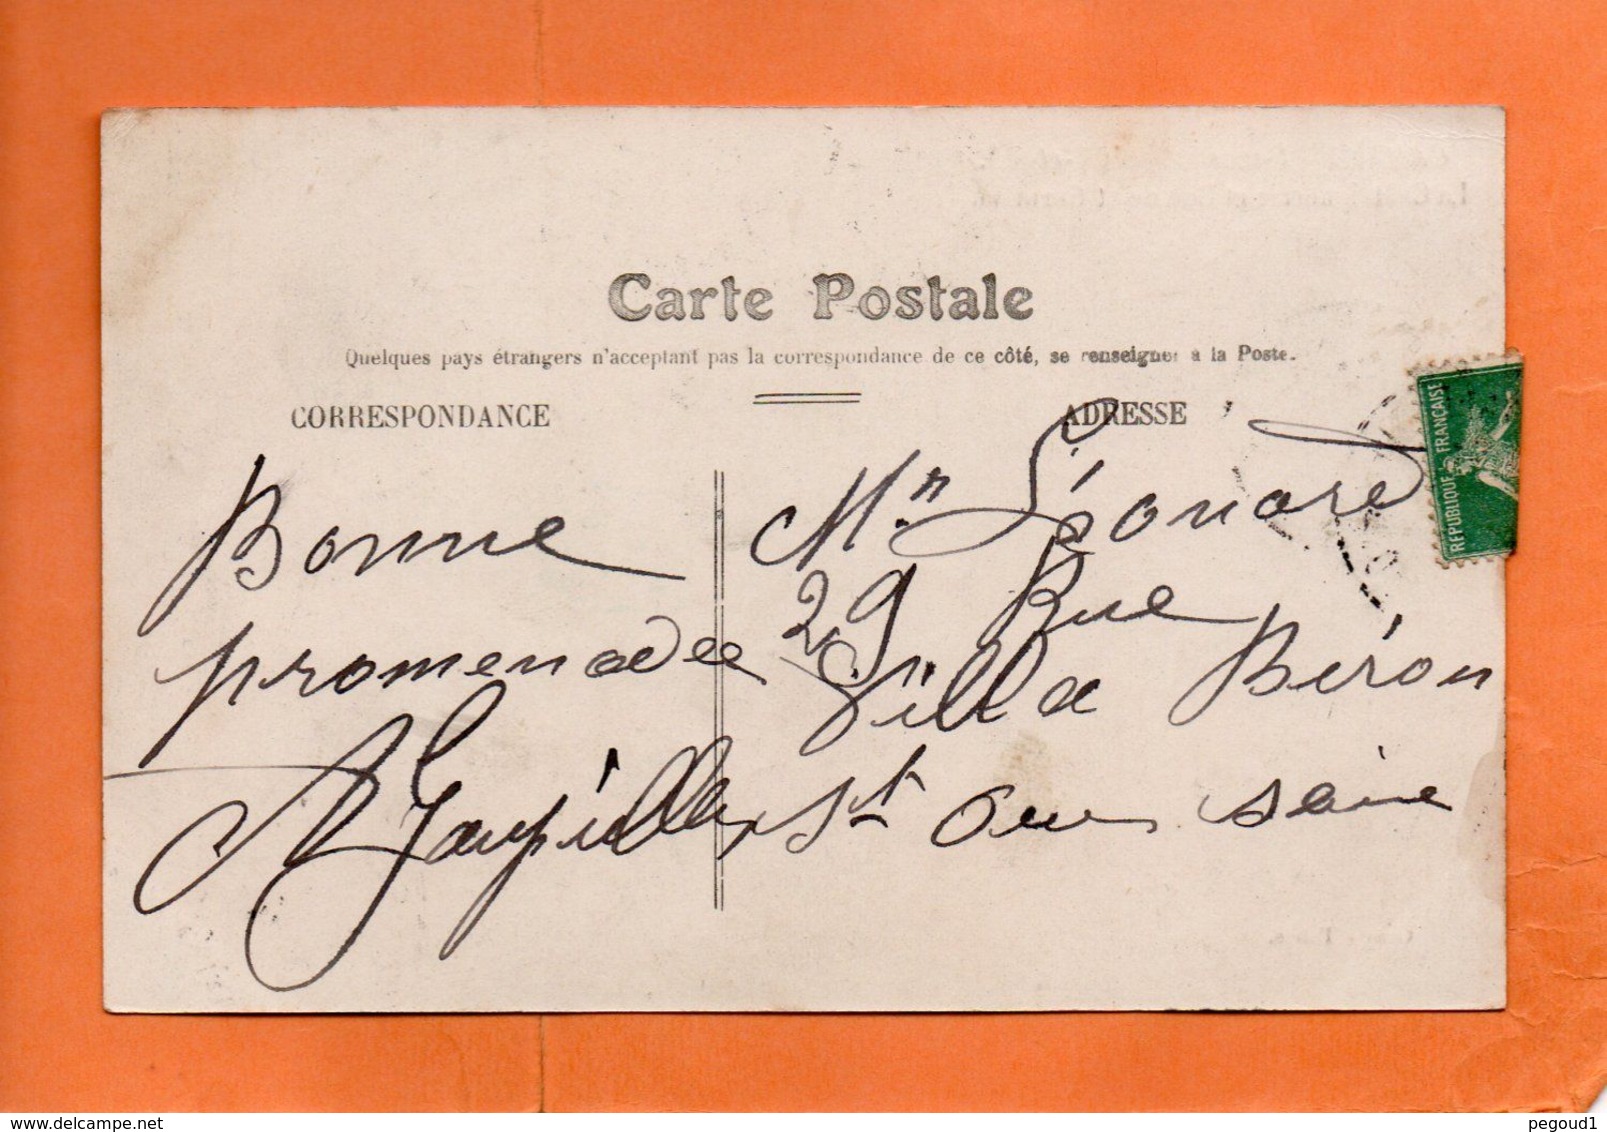 Carte Postale
Quelques pays étrangers n'acceptant pas la correspondance de ce côté, se renseigner à la Poste.
CORRESPONDANCE
Bonne
promenade
ADRESSE
Mr Léonard
29 Rue
Villa Béron
St Ouen Seine
REPUBLIQUE FRANÇAISE
www.delcampe.net
pegoud1